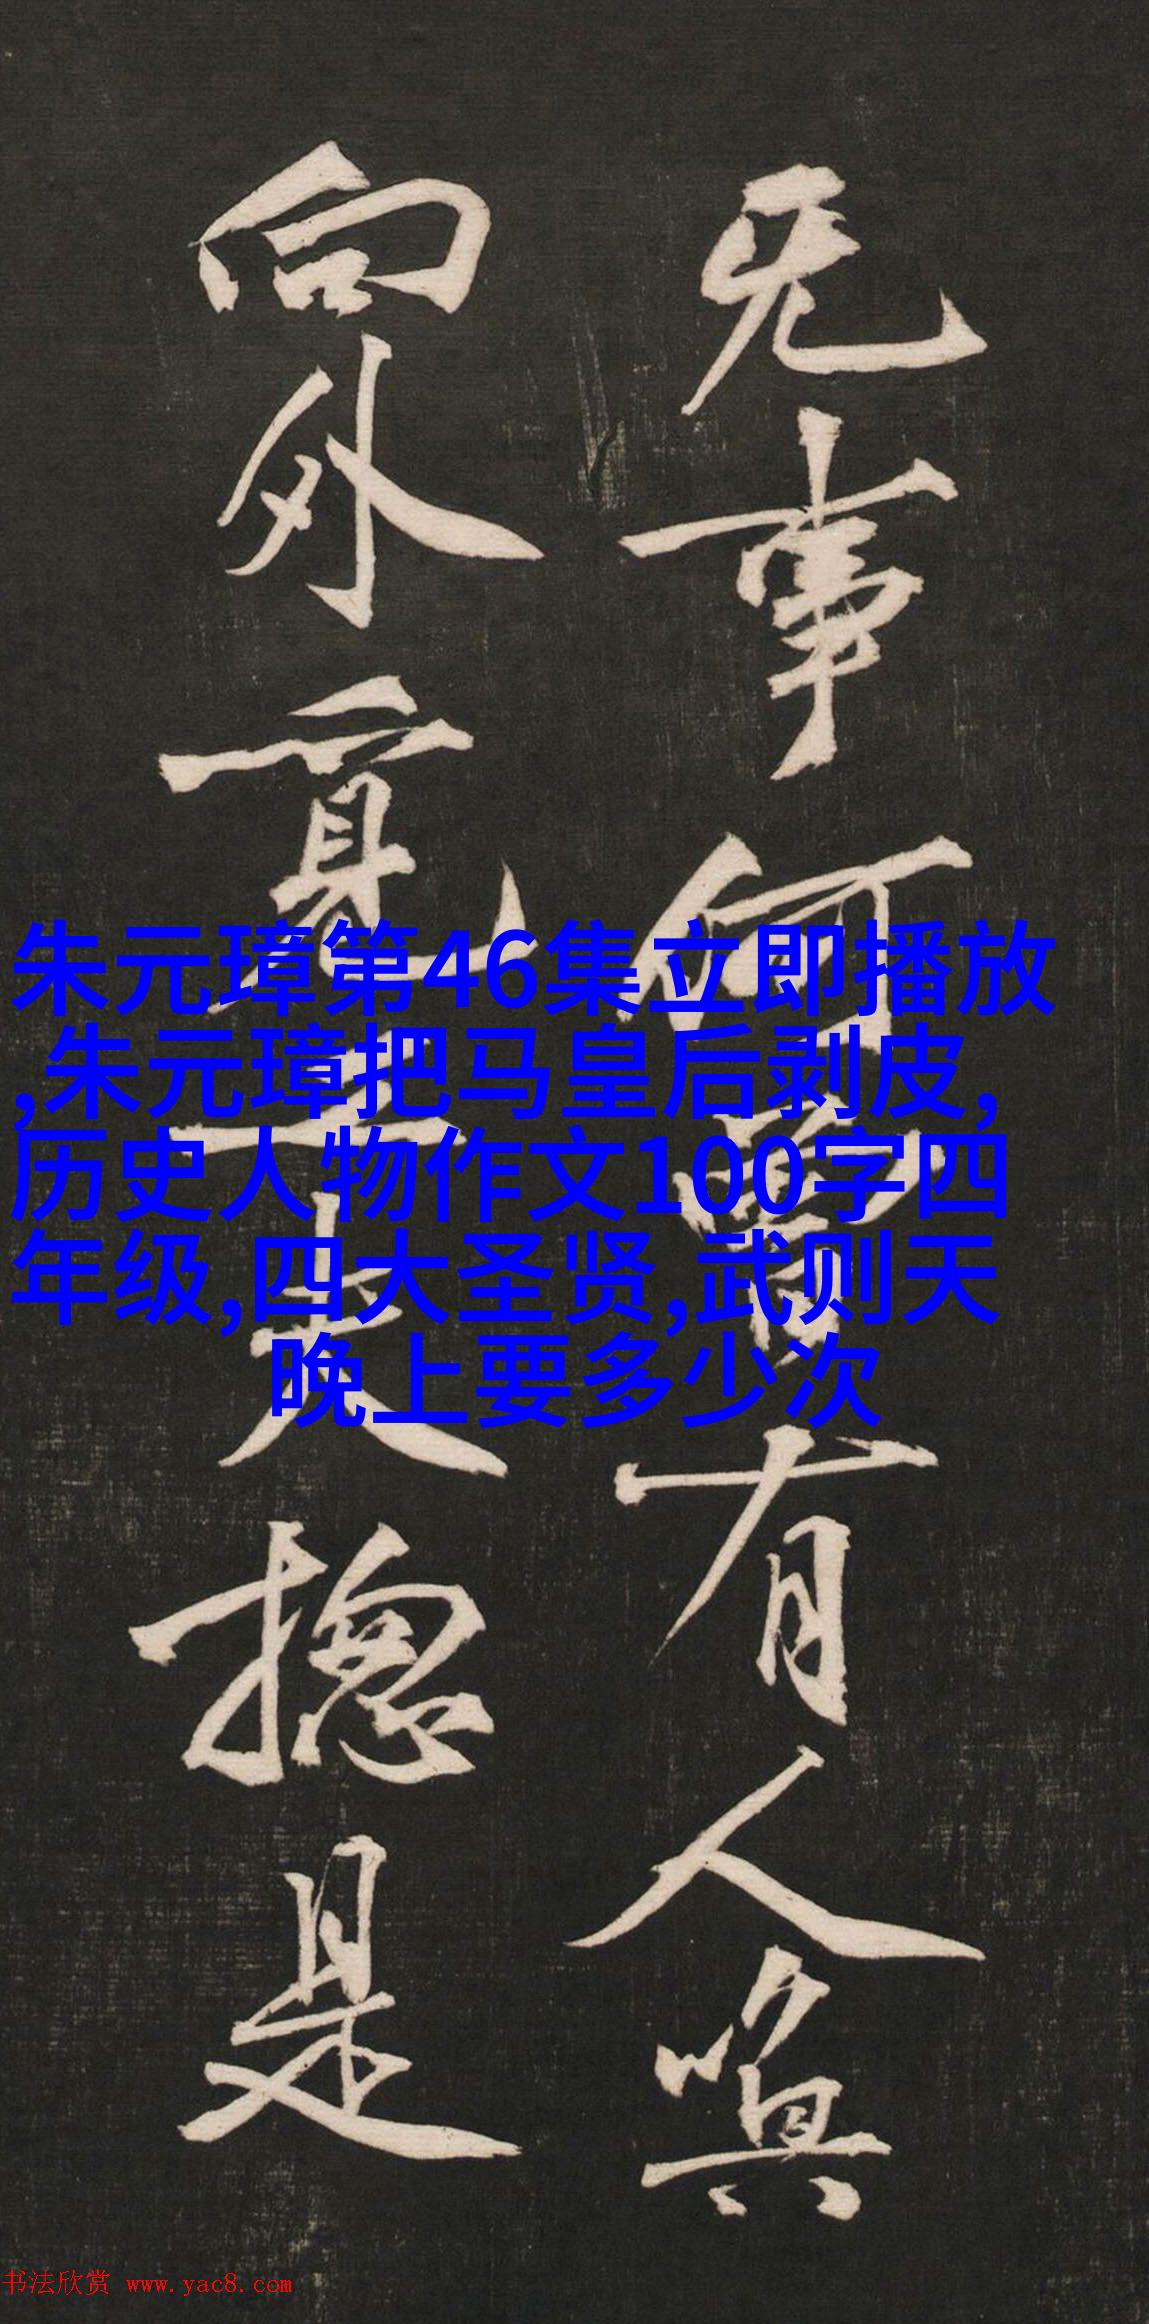 旡事何有人
向外覔工夫捴是
朱元璋第46集立即播放
,朱元璋把马皇后剥皮,
历史人物作文100字四
年级,四大圣贤,武则天
晚上要多少次
书法欣赏 www.yac8.com